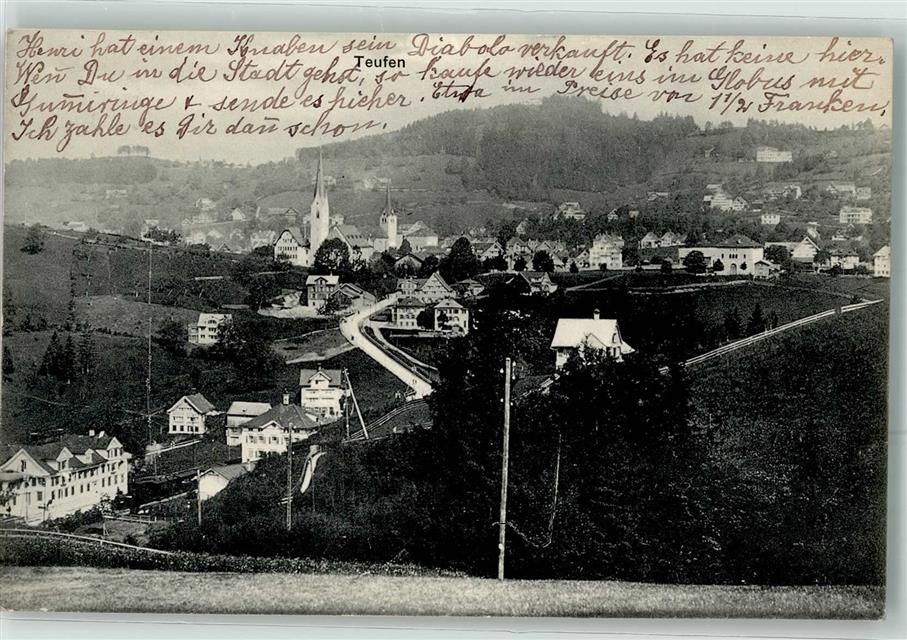 Henri hat einem Knaben sein Diabolo verkauft. Es hat keine hier.
Teufen
Wen̄ Du in die Stadt gehst, so kaufe wieder eins im Globus mit
Gum̄iringe + sende es hieher. Etwa im Preise von 1 1/2 Franken,
Ich zahle es Dir dan̄ schon.